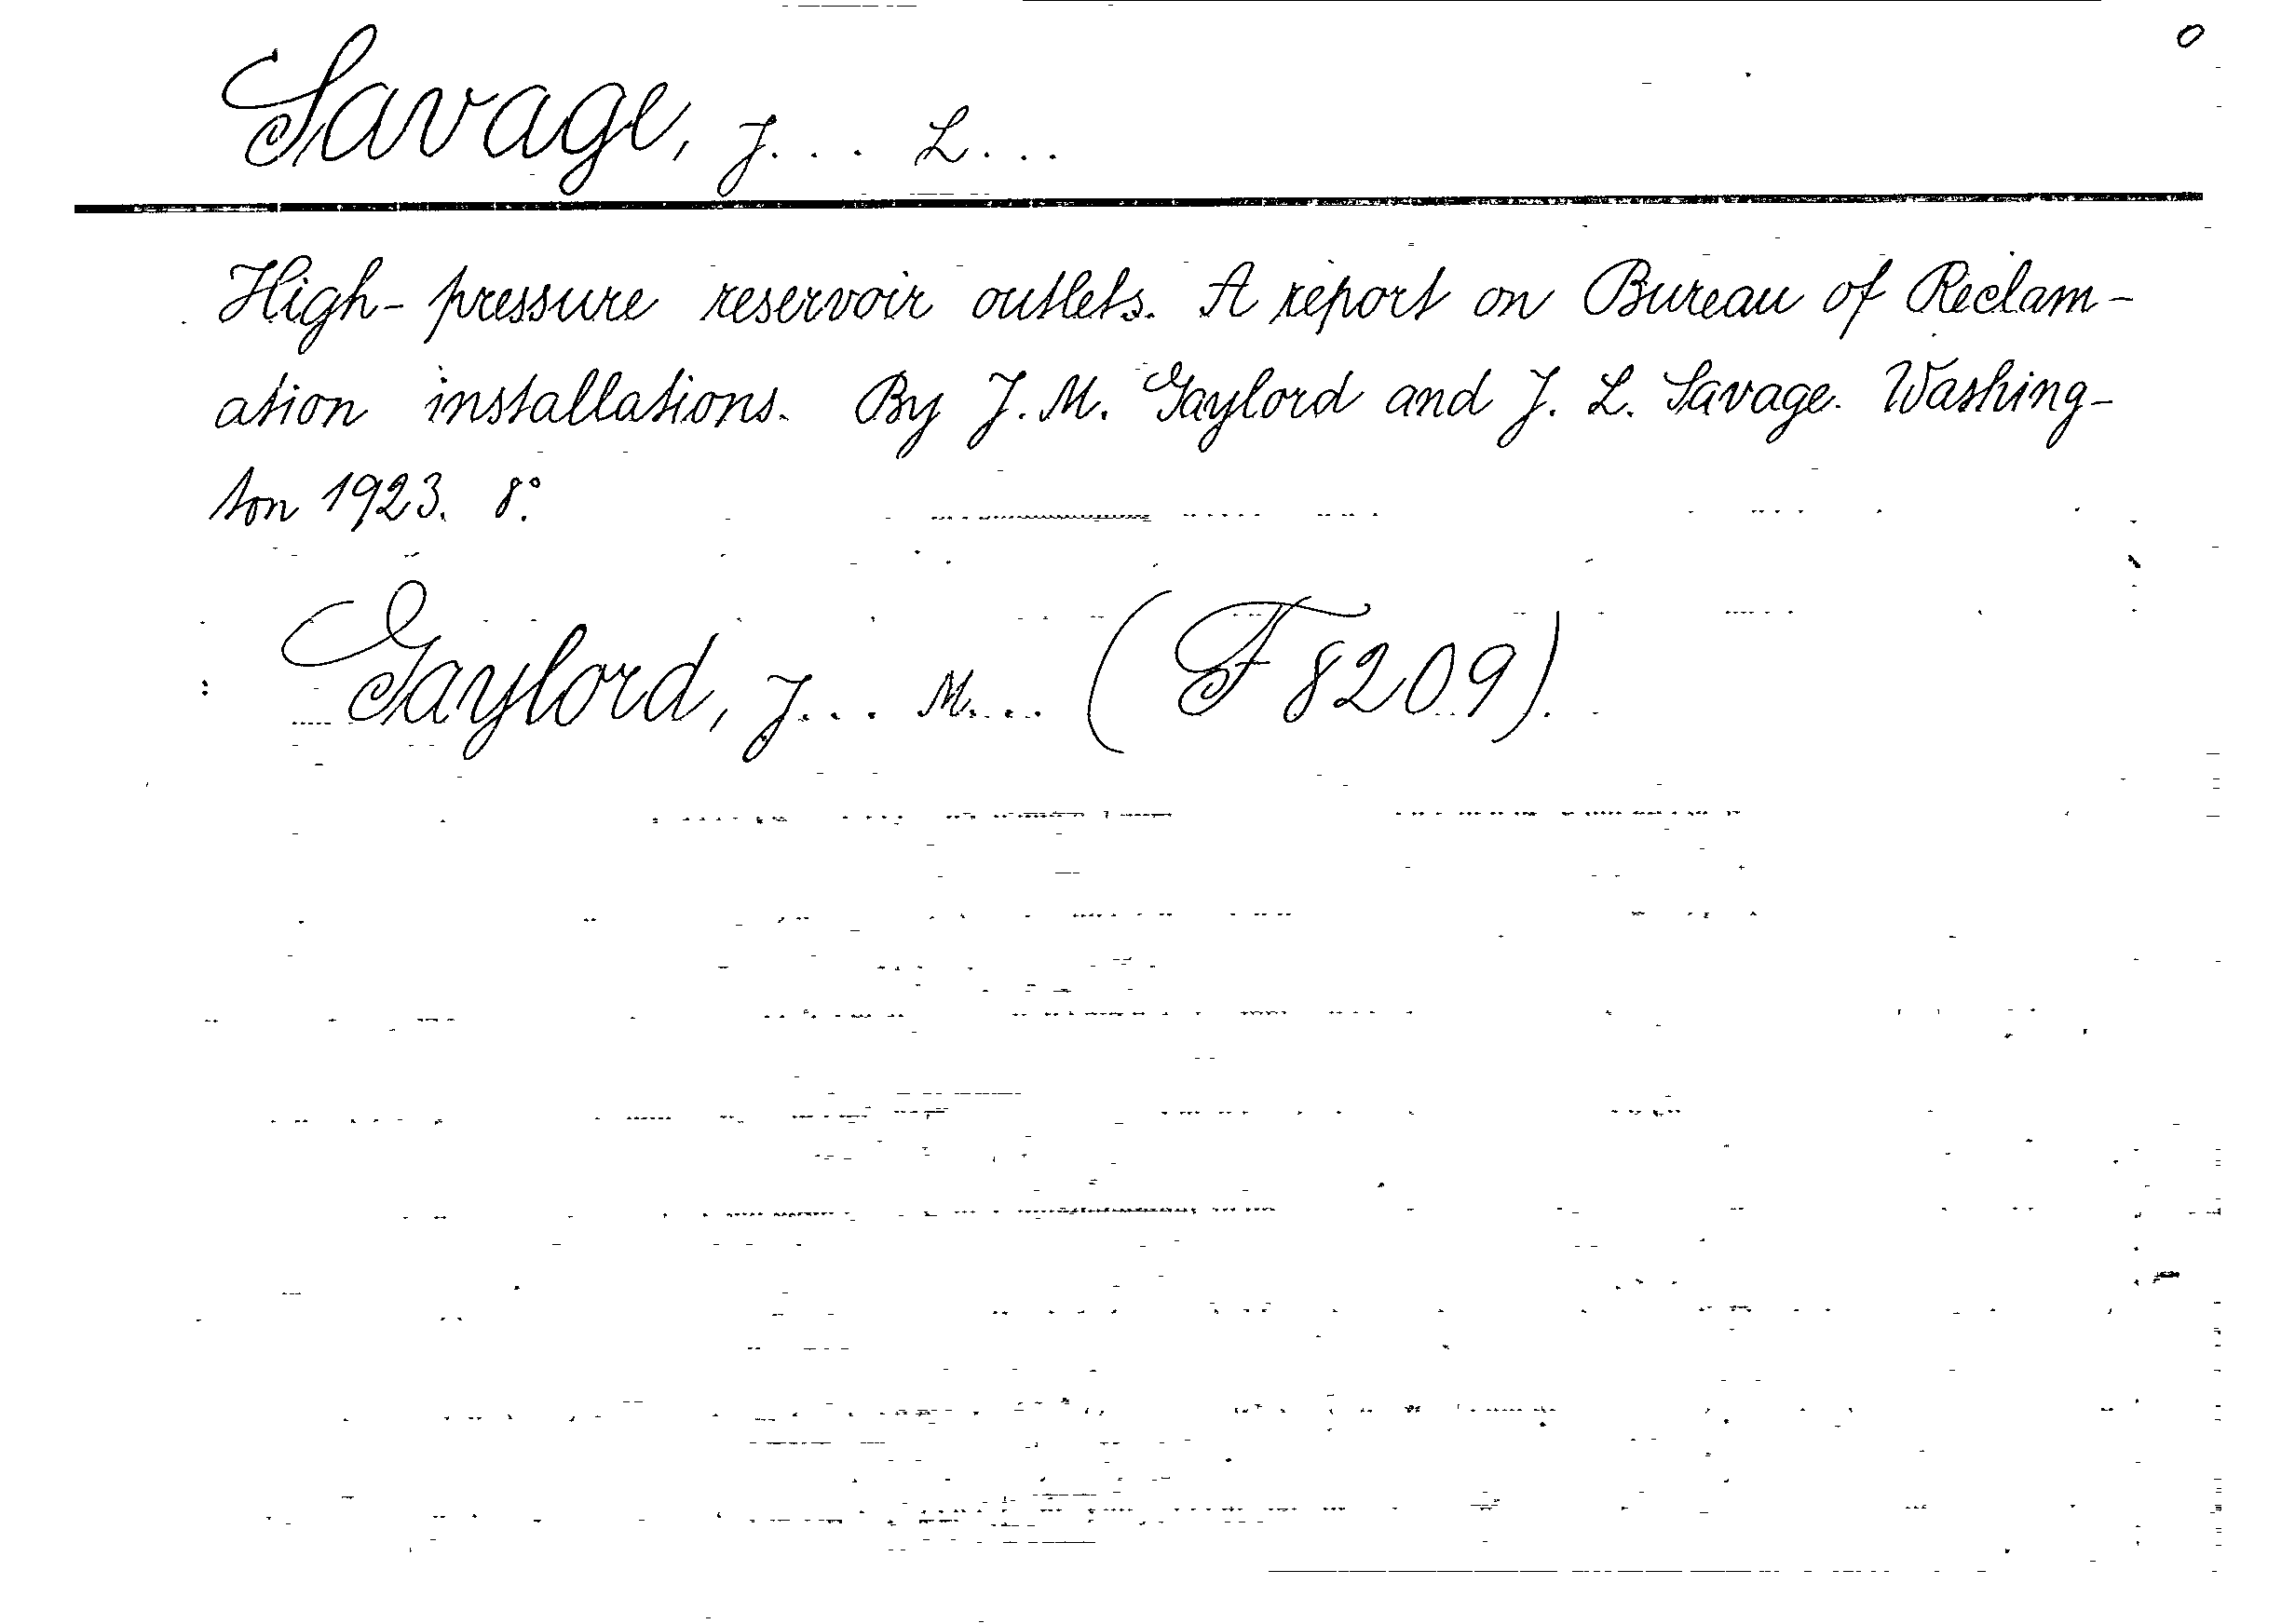 0
Savage, J... L...
High-pressure reservoir outlets. A report on Bureau of Reclam-
ation installations. By J. M. Gaylord and J. L. Savage. Washing-
ton 1923. 8°.
Gaylord, J... M... (F 8209).